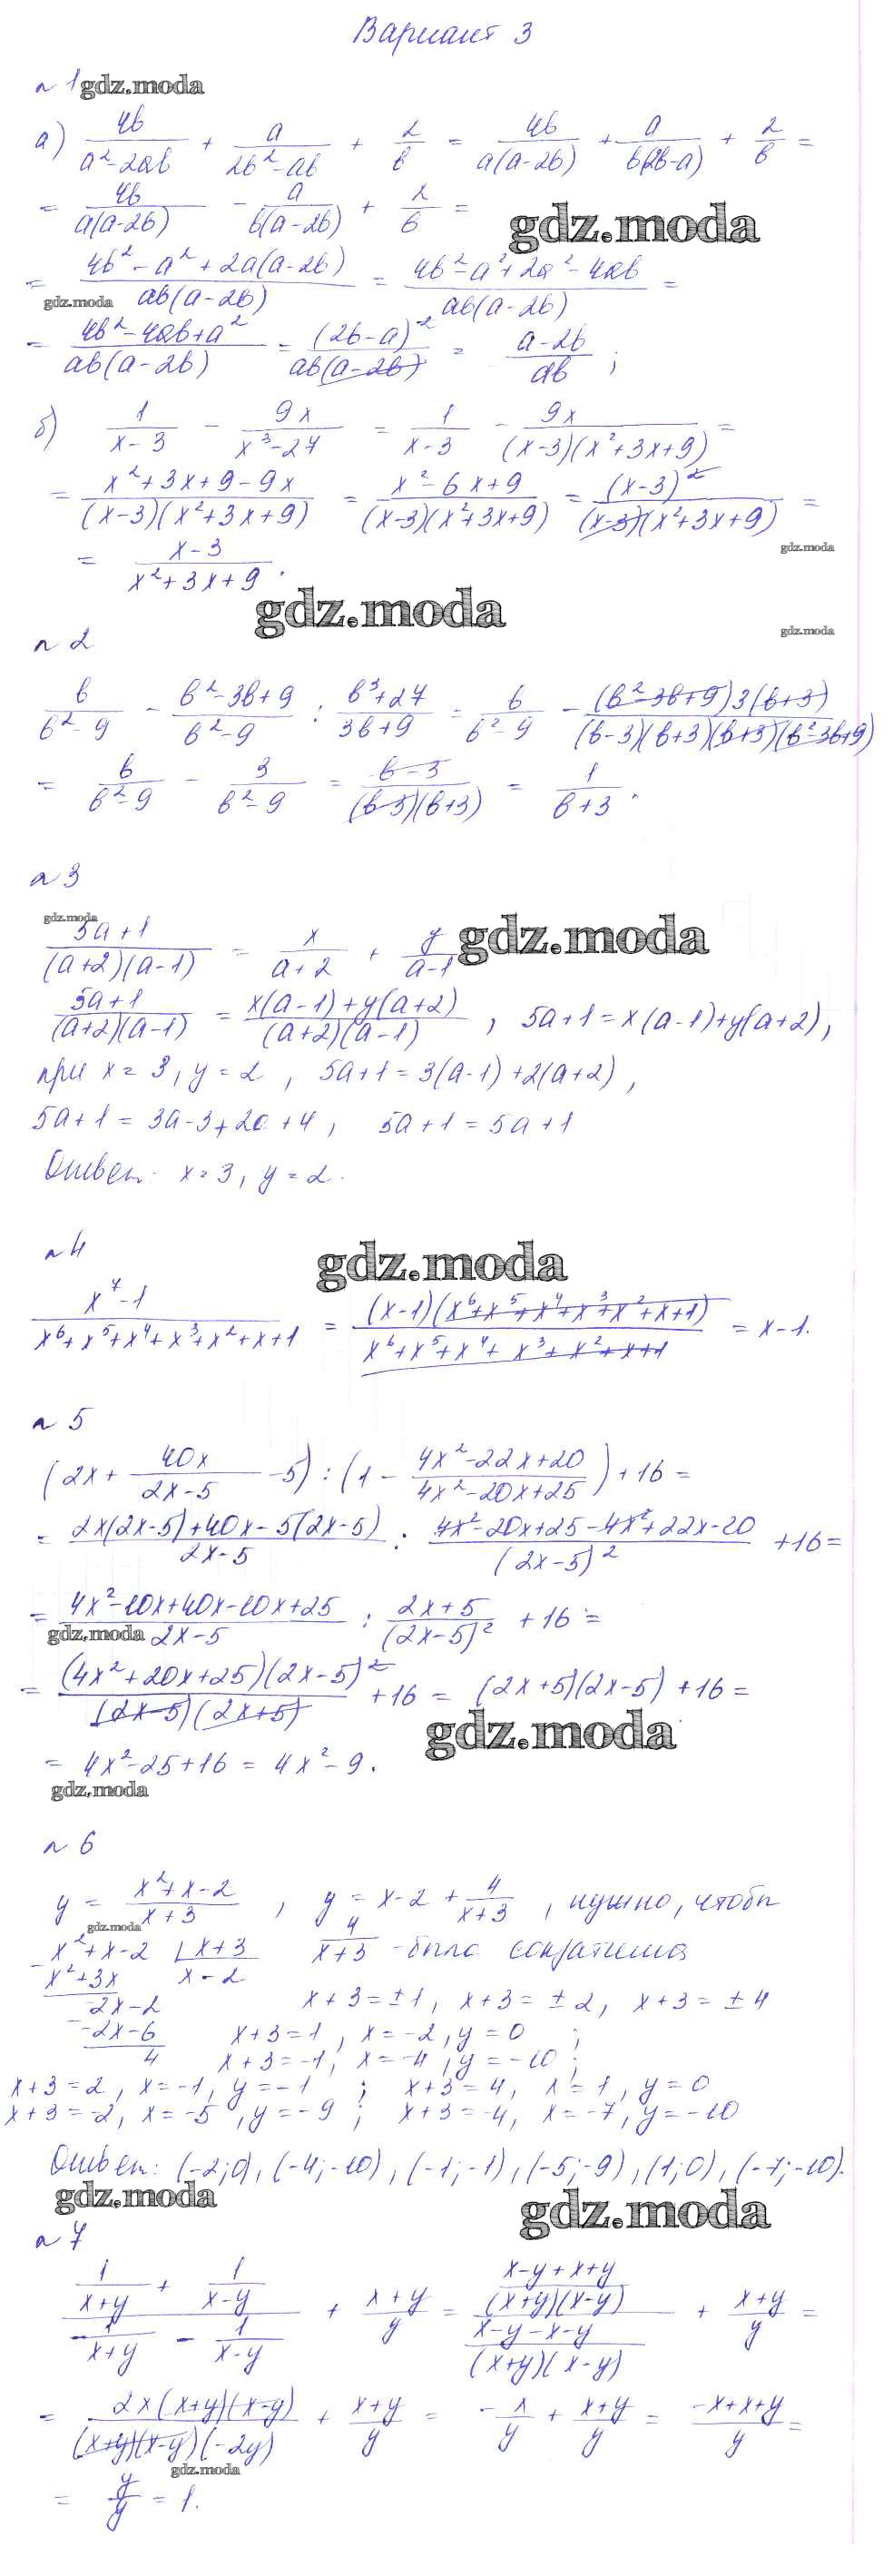 Вариант 3
n 1 gdz.moda
а) 4b/(a²-2ab) + a/(2b²-ab) + 2/b = 4b/(a(a-2b)) + a/(b(2b-a)) + 2/b =
= 4b/(a(a-2b)) - a/(b(a-2b)) + 2/b =
gdz.moda
= (4b²-a²+2a(a-2b))/(ab(a-2b)) = (4b²-a²+2a²-4ab)/(ab(a-2b)) =
gdz.moda
= (4b²-4ab+a²)/(ab(a-2b)) = (2b-a)²/(ab(a-2b)) = (a-2b)/(ab) ;
б) 1/(x-3) - 9x/(x³-27) = 1/(x-3) - 9x/((x-3)(x²+3x+9)) =
= (x²+3x+9-9x)/((x-3)(x²+3x+9)) = (x²-6x+9)/((x-3)(x²+3x+9)) = (x-3)²/((x-3)(x²+3x+9)) =
gdz.moda
= (x-3)/(x²+3x+9) .
gdz.moda
gdz.moda
n 2
b/(b²-9) - (b²-3b+9)/(b²-9) : (b³+27)/(3b+9) = b/(b²-9) - ((b²-3b+9)3(b+3))/((b-3)(b+3)(b+3)(b²-3b+9))
= b/(b²-9) - 3/(b²-9) = (b-3)/((b-3)(b+3)) = 1/(b+3) .
n 3
gdz.moda
(5a+1)/((a+2)(a-1)) = x/(a+2) + y/(a-1)
gdz.moda
(5a+1)/((a+2)(a-1)) = (x(a-1)+y(a+2))/((a+2)(a-1)) , 5a+1=x(a-1)+y(a+2),
при x=3, y=2 , 5a+1=3(a-1)+2(a+2) ,
5a+1 = 3a-3+2a+4 , 5a+1=5a+1
Ответ: x=3, y=2.
n 4
gdz.moda
(x⁷-1)/(x⁶+x⁵+x⁴+x³+x²+x+1) = ((x-1)(x⁶+x⁵+x⁴+x³+x²+x+1))/(x⁶+x⁵+x⁴+x³+x²+x+1) = x-1.
n 5
(2x + 40x/(2x-5) - 5) : (1 - (4x²-22x+20)/(4x²-20x+25)) + 16 =
= (2x(2x-5)+40x-5(2x-5))/(2x-5) : (4x²-20x+25-4x²+22x-20)/(2x-5)² + 16 =
= (4x²-10x+40x-10x+25)/(2x-5) : (2x+5)/(2x-5)² + 16 =
gdz.moda
= ((4x²+20x+25)(2x-5)²)/((2x-5)(2x+5)) + 16 = (2x+5)(2x-5)+16 =
gdz.moda
= 4x²-25+16 = 4x²-9 .
gdz.moda
n 6
y = (x²+x-2)/(x+3) , y = x-2 + 4/(x+3) , нужно, чтобы
gdz.moda
x²+x-2 | x+3 4/(x+3) - было сократимо
-x²+3x x-2
-2x-2 x+3=±1, x+3=±2, x+3=±4
-2x-6 x+3=1 , x=-2, y=0 ;
4 x+3=-1, x=-4 , y=-10 ;
x+3=2, x=-1, y=-1 ; x+3=4, x=1, y=0
x+3=-2, x=-5 , y=-9 ; x+3=-4, x=-7, y=-10
Ответ: (-2;0), (-4;-10), (-1;-1), (-5;-9), (1;0), (-7;-10).
gdz.moda
gdz.moda
n 7
(1/(x+y) + 1/(x-y))/(1/(x+y) - 1/(x-y)) + (x+y)/y = ((x-y+x+y)/((x+y)(x-y)))/((x-y-x-y)/((x+y)(x-y))) + (x+y)/y =
= (2x(x+y)(x-y))/((x+y)(x-y)(-2y)) + (x+y)/y = -x/y + (x+y)/y = (-x+x+y)/y =
gdz.moda
= y/y = 1.